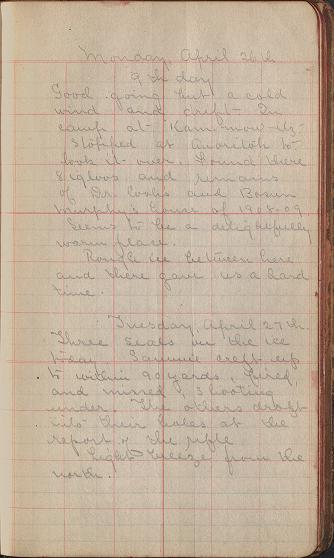 Monday, April 26th
9th day
Good going but a cold
wind and drift. In
camp at
Stopped at Anoritok to
look it over. Found there
8 igloos and remains
of Dr. Cooks and Bosun
Murphy's house of 1908-09
Seems to be a delightfully
warm place.
Rough ice between here
and there gave us a hard
time.
Tuesday, April 27th.
Three seals on the ice
today. Sammie crept up
to within 90 yards, fired,
and missed, shooting
under. The others dropt
into their holes at the
report of the rifle
Light breeze from the
north.